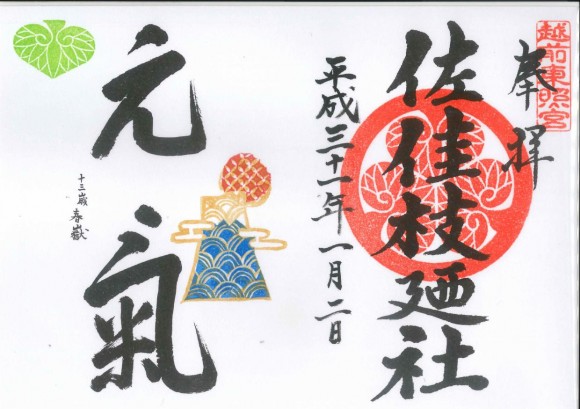 越前東照宮
奉拝
佐佳枝廼社
平成三十一年一月二日
元氣
十三歳 春嶽